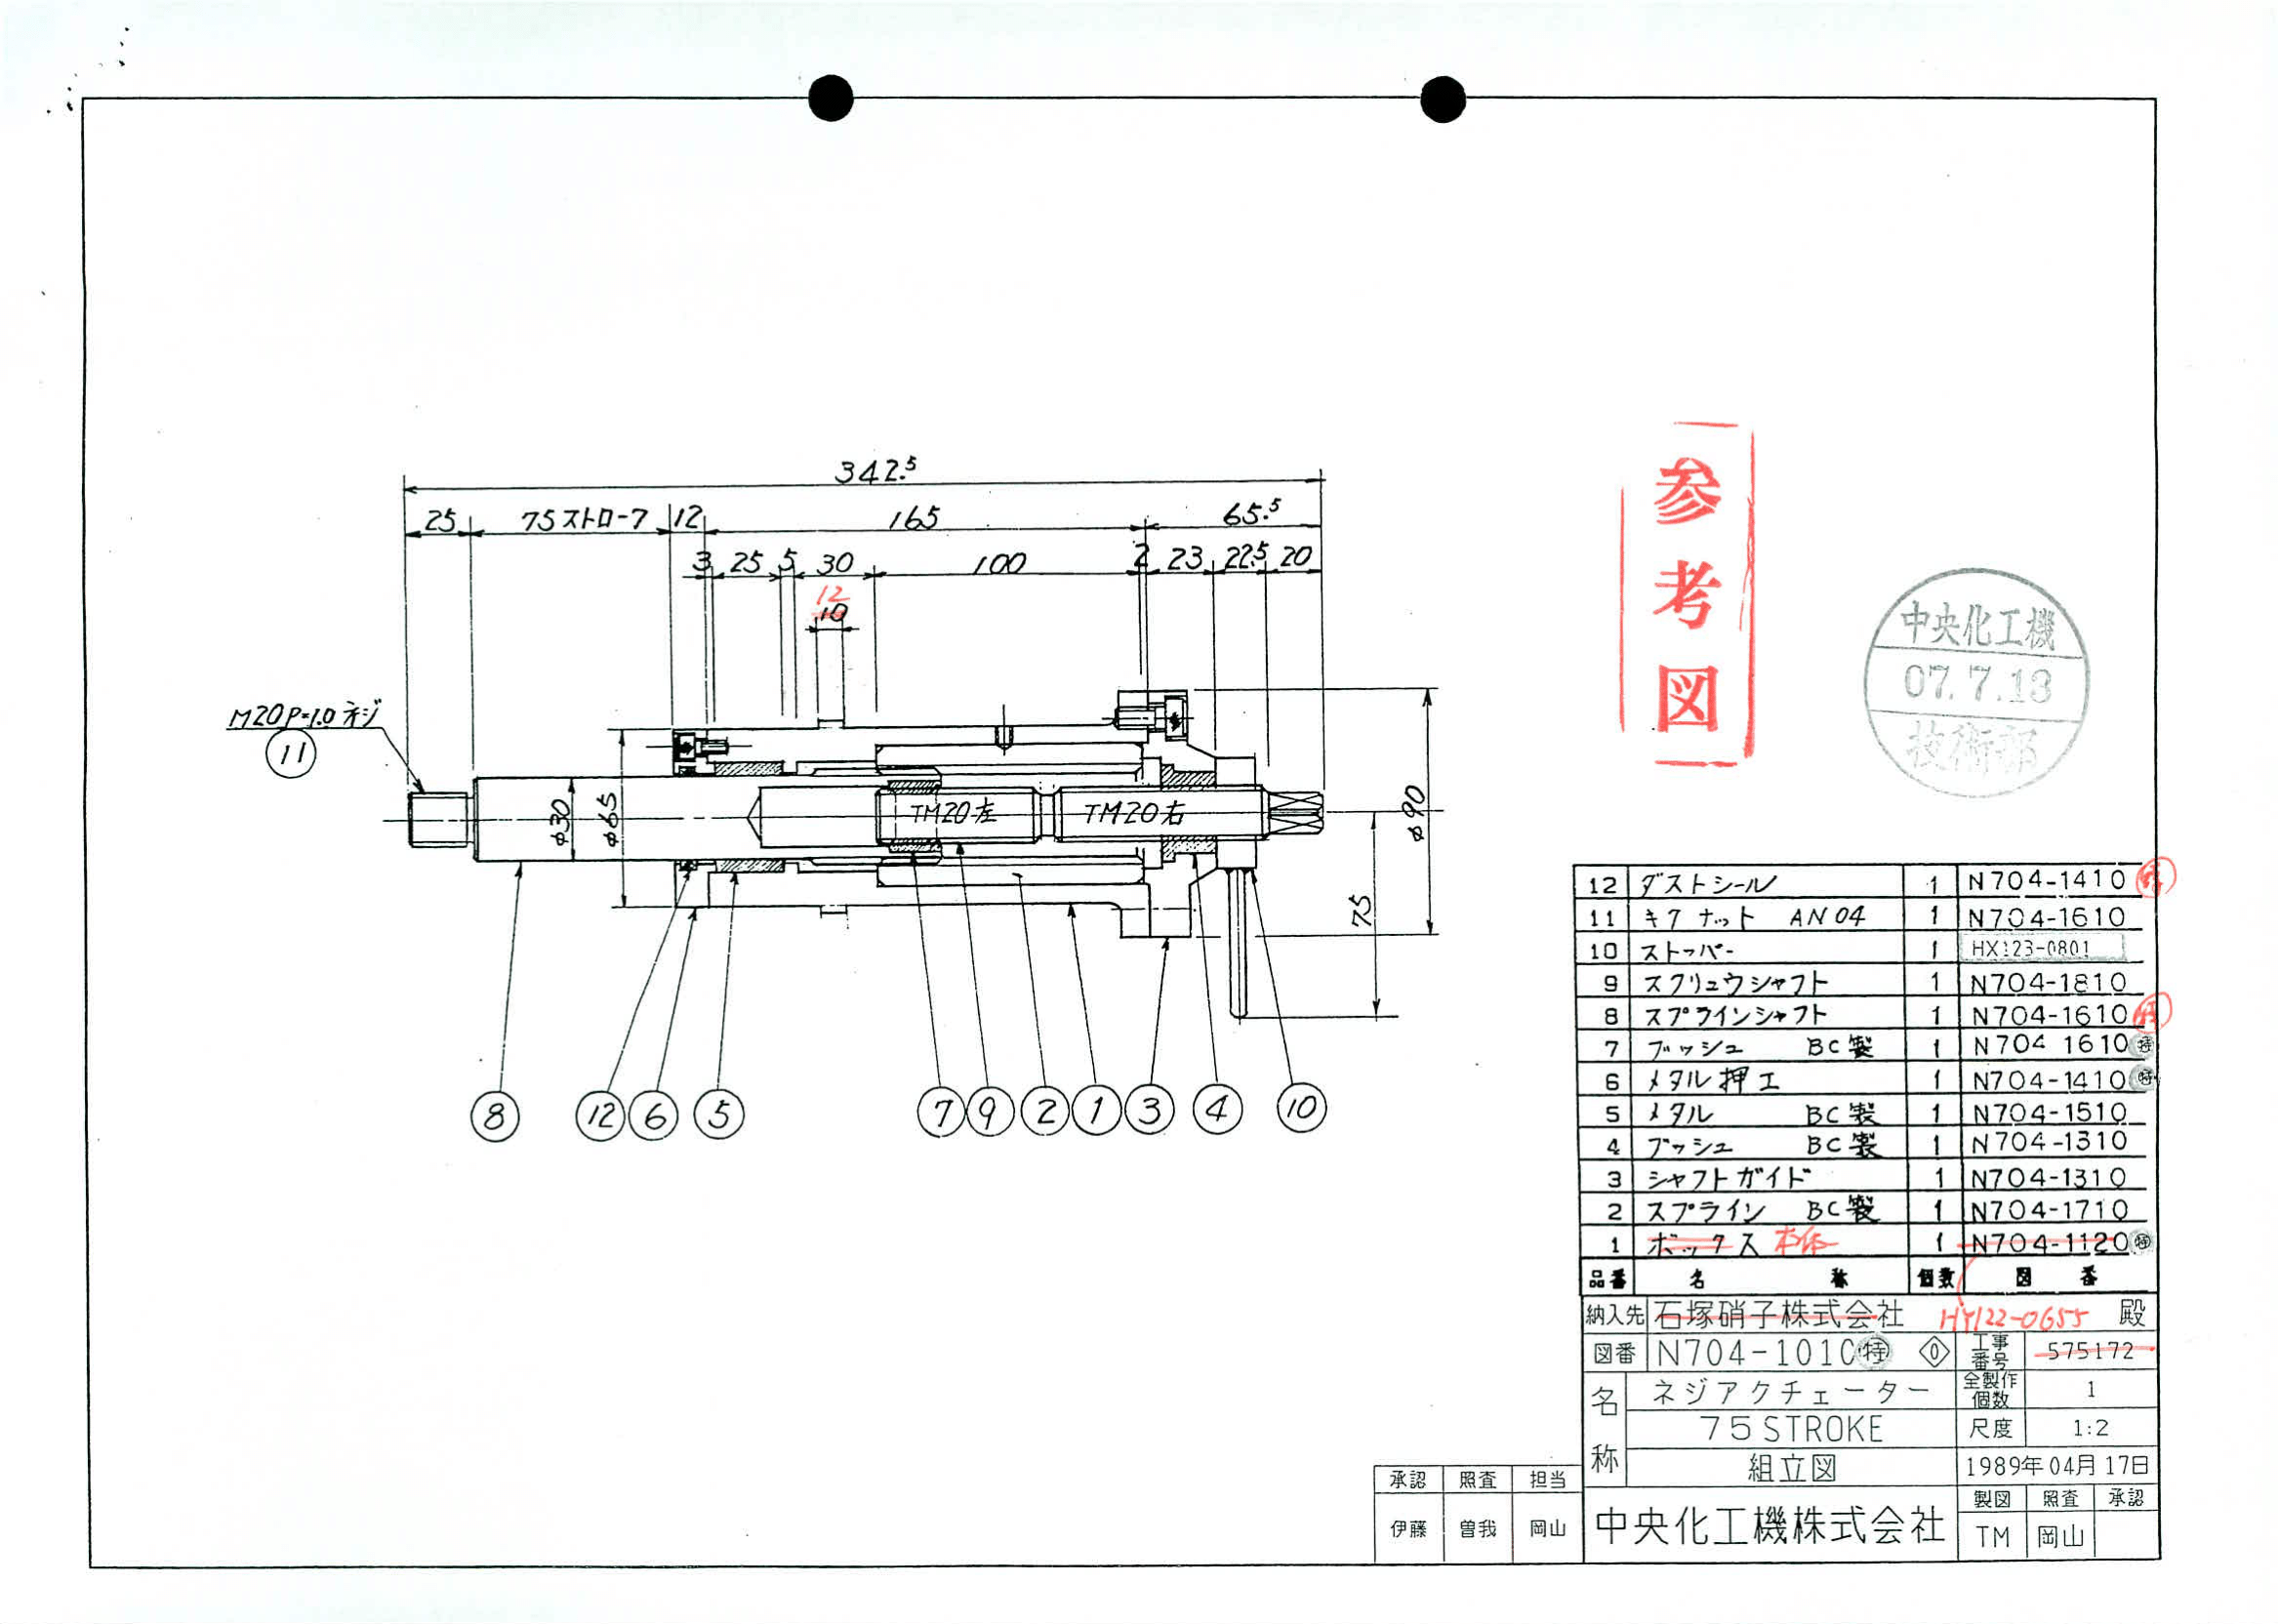 342.5
25 75ストローク 12 165 65.5
3 25 5 30 100 2 23 22.5 20
12
10
M20P=1.0 ネジ
11
φ30
φ65
TM20左
TM20右
φ90
75
8 12 6 5 7 9 2 1 3 4 10
参考図
中央化工機
07.7.13
技術部
12 ダストシール 1 N704-1410 特
11 キクナット AN04 1 N704-1610
10 ストッパー 1 HX123-0801
9 スクリュウシャフト 1 N704-1810
8 スプラインシャフト 1 N704-1610 特
7 ブッシュ BC製 1 N704 1610 特
6 メタル押エ 1 N704-1410 特
5 メタル BC製 1 N704-1510
4 ブッシュ BC製 1 N704-1310
3 シャフトガイド 1 N704-1310
2 スプライン BC製 1 N704-1710
1 ボックス 本体 1 N704-1120 特
品番 名称 個数 図番
納入先 石塚硝子株式会社 HY122-0655 殿
図番 N704-1010 特 0 工事番号 575172
名称 ネジアクチェーター 全製作個数 1
75STROKE 尺度 1:2
組立図 1989年04月17日
承認 照査 担当
伊藤 曽我 岡山
中央化工機株式会社
製図 照査 承認
TM 岡山